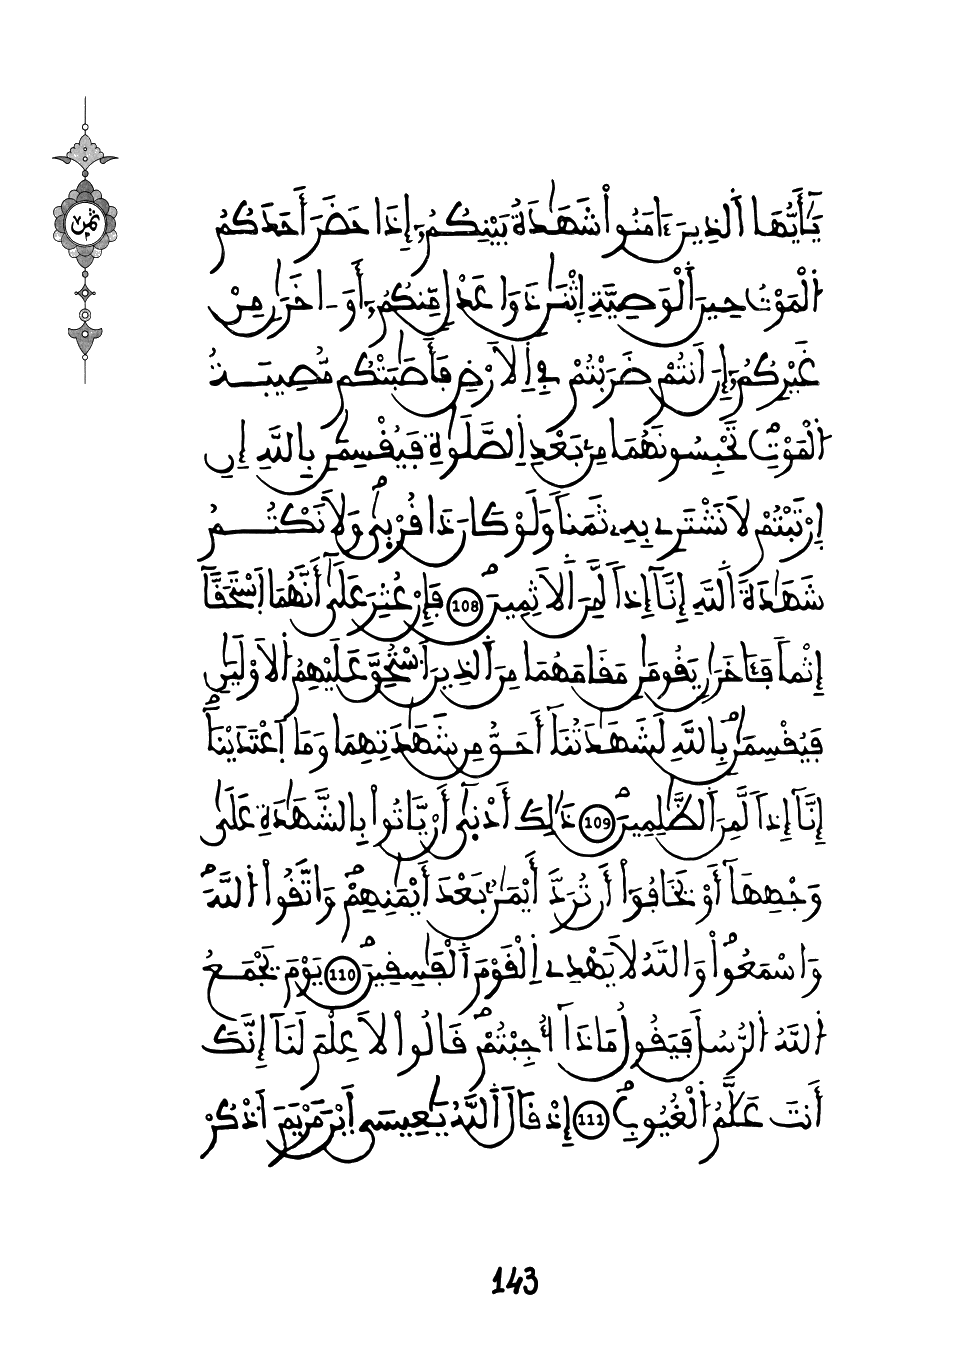 ثمن
يَٰٓأَيُّهَا اَ۬لذِينَ ءَامَنُواْ شَهَٰدَةُ بَيْنِكُمُۥٓ إِذَا حَضَرَ أَحَدَكُمُ
اُ۬لْمَوْتُ حِينَ اَ۬لْوَصِيَّةِ اِثْنَٰنِ ذَوَا عَدْلٖ مِّنكُمُۥٓ أَوَ اٰخَرَٰنِ مِنْ
غَيْرِكُمُۥٓ إِنَ اَنتُمْ ضَرَبْتُمْ فِے اِ۬لَارْضِ فَأَصَٰبَتْكُم مُّصِيبَةُ
اُ۬لْمَوْتِۖ تَحْبِسُونَهُمَا مِنۢ بَعْدِ اِ۬لصَّلَوٰةِ فَيُقْسِمَٰنِ بِاللَّهِ إِنِ
اِ۪رْتَبْتُمْ لَا نَشْتَرِے بِهِۦ ثَمَناٗ وَلَوْ كَانَ ذَا قُرْبۭيٰۖ وَلَا نَكْتُمُ
شَهَٰدَةَ اَ۬للَّهِ إِنَّآ إِذاٗ لَّمِنَ اَ۬لَاثِمِينَۖ 108 فَإِنْ عُثِرَ عَلَيٰٓ أَنَّهُمَا اَ۪سْتَحَقَّآ
إِثْماٗ فَـَٔاخَرَٰنِ يَقُومَٰنِ مَقَامَهُمَا مِنَ اَ۬لذِينَ اَ۟سْتُحِقَّ عَلَيْهِمُ اُ۬لَاوْلَيَٰنِ
فَيُقْسِمَٰنِۖ بِاللَّهِ لَشَهَٰدَتُنَآ أَحَقُّ مِن شَهَٰدَتِهِمَا وَمَا اَ۪عْتَدَيْنَآۖ
إِنَّآ إِذاٗ لَّمِنَ اَ۬لظَّٰلِمِينَۖ 109 ذَٰلِكَ أَدْنۭيٰٓ أَنْ يَّاتُواْ بِالشَّهَٰدَةِ عَلَيٰ
وَجْهِهَآ أَوْ يَخَافُوٓاْ أَن تُرَدَّ أَيْمَٰنُۢ بَعْدَ أَيْمَٰنِهِمْۖ وَاتَّقُواْ اُ۬للَّهَۖ
وَاسْمَعُواْۖ وَاللَّهُ لَا يَهْدِے اِ۬لْقَوْمَ اَ۬لْفَٰسِقِينَۖ 110 يَوْمَ يَجْمَعُ
اُ۬للَّهُ اُ۬لرُّسُلَ فَيَقُولُ مَاذَآ أُجِبْتُمْۖ قَالُواْ لَا عِلْمَ لَنَآ إِنَّكَ
أَنتَ عَلَّٰمُ اُ۬لْغُيُوبِۖ 111 إِذْ قَالَ اَ۬للَّهُ يَٰعِيسَي اَ۪بْنَ مَرْيَمَ اَ۟ذْكُرْ
143